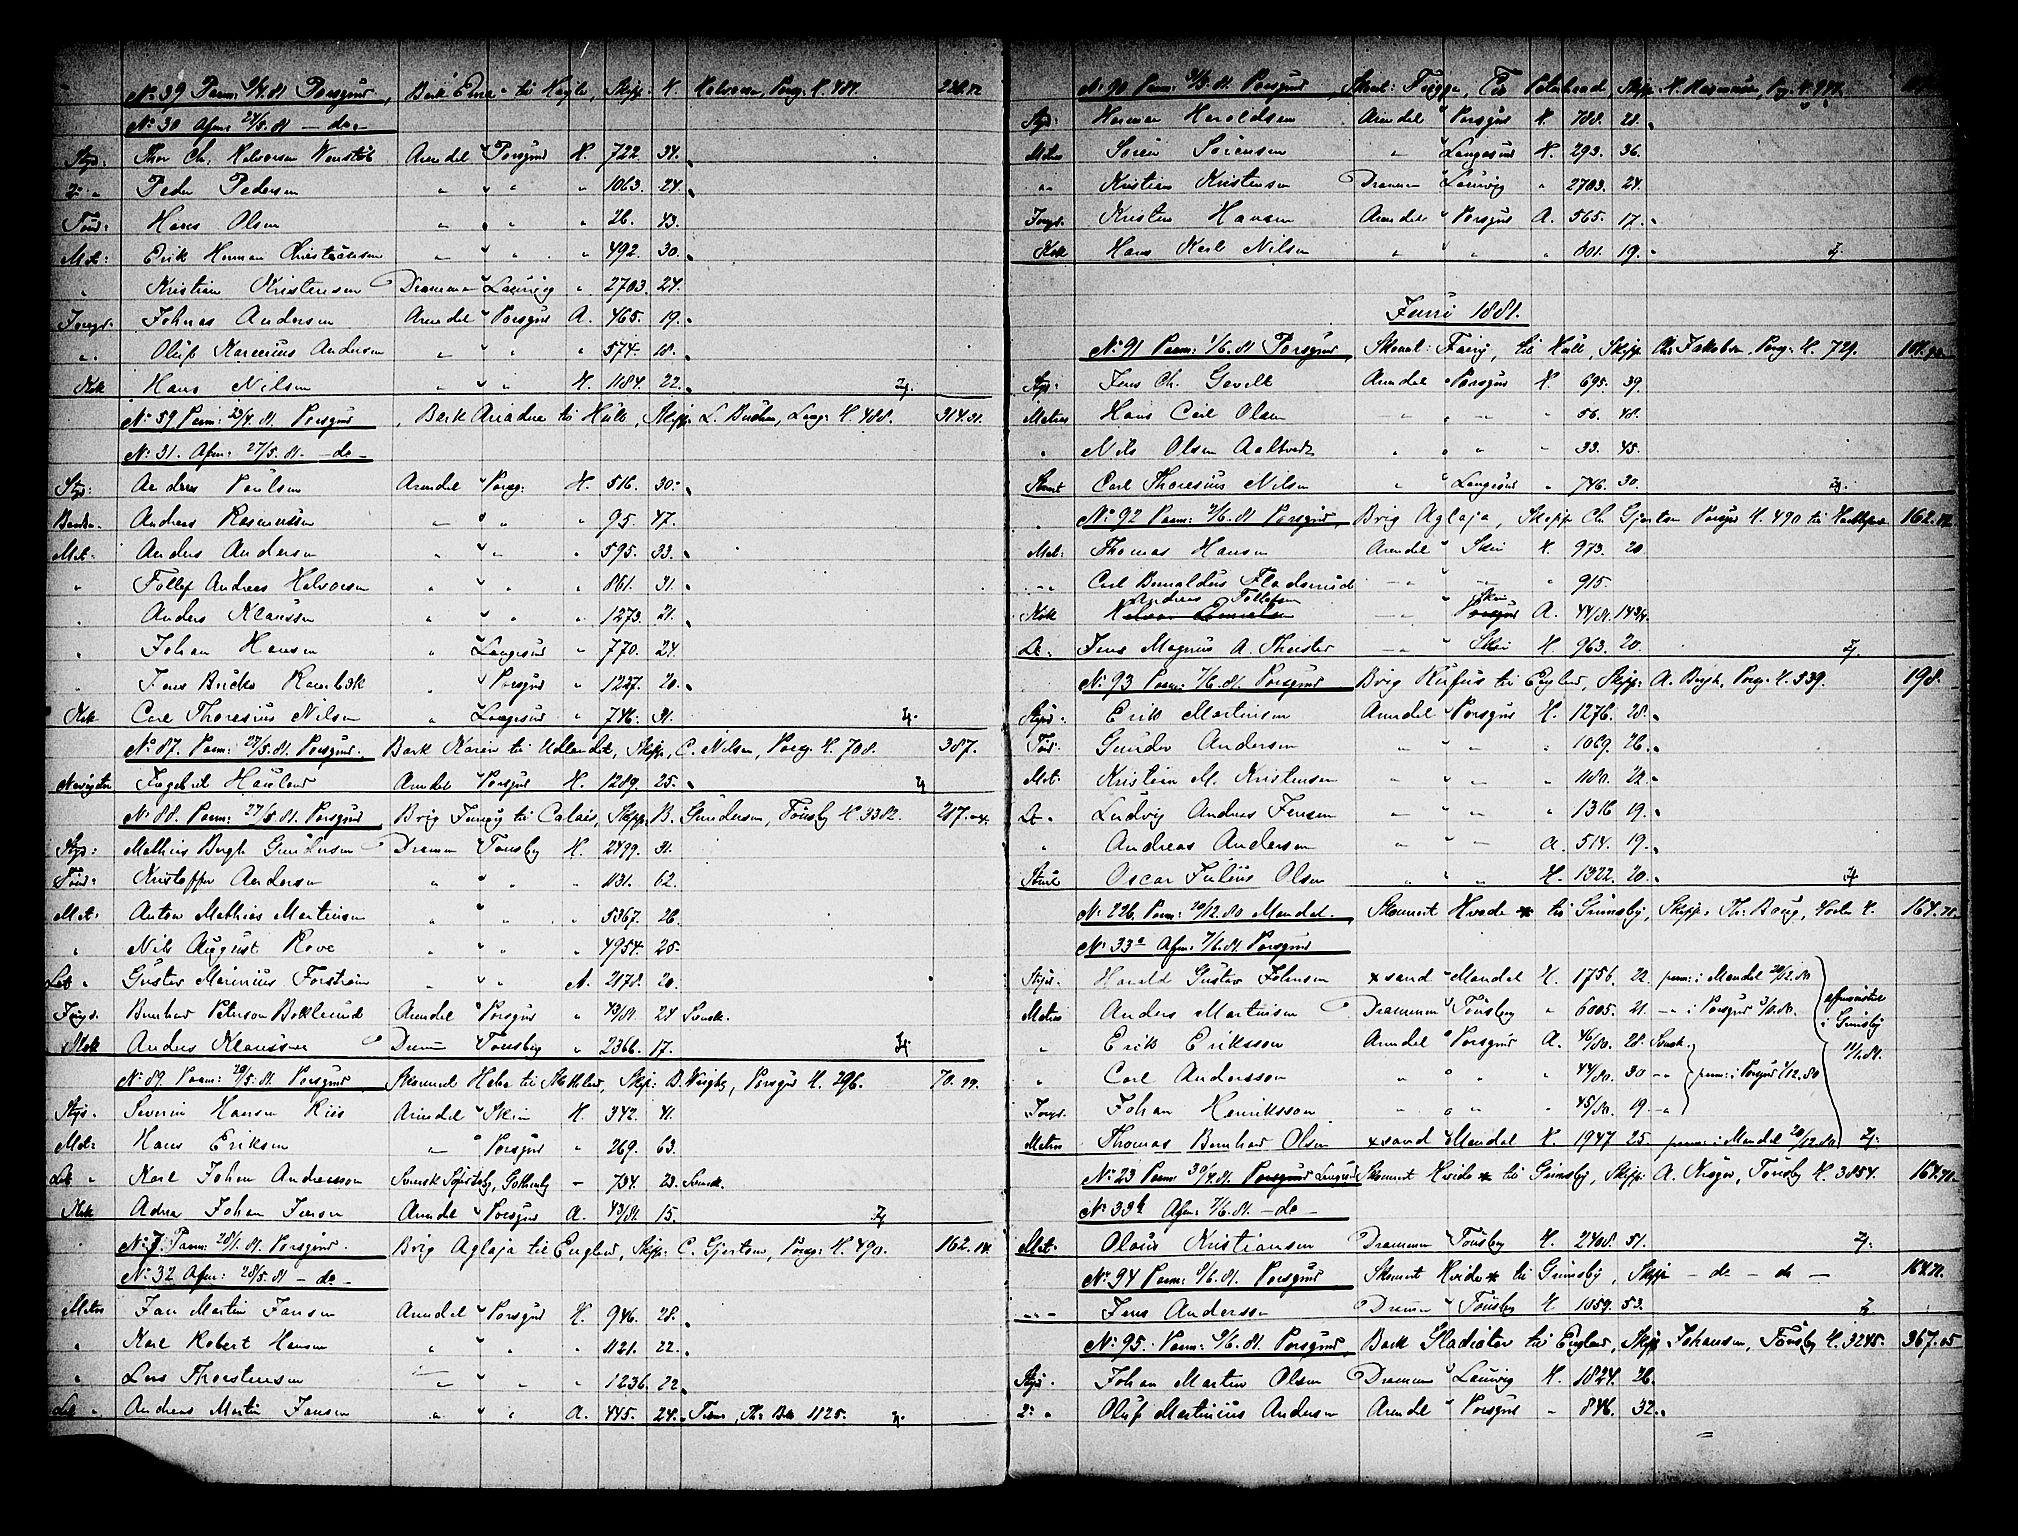 No 39 Paam: 9/4.81 Porsgrund, Bark Elna til Hayle, Skipp: K. Halvorsen, Porsg. K. 484. 236.82
No 30 Afm: 24/5.81 — do —
Styr: Thor Ch. Halvorsen Wenstöb Arendal " Porsgrund H. 722. 34.
2: " Peder Pedersen " " " " 1063. 24.
Tömr: Hans Olsen " " " " 26. 43.
Mat: Erik Herman Christensen " " " " 492. 30.
" Kristian Kristensen Drammen " Laurvig " 2703. 24.
Jungs. Johnas Andersen Arendal " Porsgrund A. 465. 19.
" Oluf Andersen " " " " 574. 18.
Kok Hans Nilsen " " " H. 1184. 22.
No 59 Paam: 23/4.81 Porsgrund, Bark Ariadne til Hull, Skipp: L. Bredsen, Lang: K. 488. 314.31.
No 31. Afm: 27/5.81. — do —
Styr: Anders Poulsen Arendal " Porsg: H. 516. 30.
Andreas Rasmussen " " " " 95. 47.
Mat: Anders Andersen " " " " 595. 33.
" Tollef Andreas Halvorsen " " " " 861. 31.
" Anders Klausen " " " " 1273. 21.
" Johan Hansen " " Langesund " 770. 24.
" Jens Bucke " " Porsgrund " 1227. 20.
Kok Carl Thoresius Nilsen " " Langesund " 746. 31.
No 87. Paam: 27/5.81. Porsgrund. Bark Karen til Udlandet, Skipp. C. Nilsen, Porsg. K. 708. 387.
Ingebret Hauland Arendal " Porsgrund H. 1289. 25.
No 88. Paam: 27/5.81. Porsgrund Brig til Calais, Skipp: B. Gundersen, Tönsby K 3382. 217.04.
Styr: Mathias Bergh Gundersen Drammen " Tönsby H. 2499. 31.
Tömr: Kristoffer Andersen " " " " 1131. 62.
Mat: Anton Mathias Martinsen " " " " 5367. 26.
" Nils August Rove " " " " 4954. 25.
Let " Gustav Marinius Forström " " " A. 2178. 20.
Jungs. Bernhard Peterson Boklund Arendal " Porsgrund " 43/81. 24 Svensk.
Kok Anders Klaussen Drammen " Tönsberg " 2366. 17.
No 89. Paam: 28/5.81. Porsgrund Skonnert Hebe til Skotland, Skip: B. Wright, Porsgrund K. 296. 70.99.
Styr. Severin Hansen Riis Arendal " Skien H. 342. 41.
Mat: Hans Eriksen " " Porsgrund " 269. 63.
Let " Karl Johan Andersson Svensk Gothenbg — 734. 23. Svensk.
Kok Adna Johan Jensen Arendal " Porsgrund A. 43/81. 15.
No 7. Paam: 28/1.81. Porsgrund. Brig Aglaja til England, Skipp: C. Gjertsen, Porsg: K. 490. 162.14.
No 32 Afm: 28/5.81 — do —
Matros Jan Martin Jansen Arendal " Porsgrund H. 946. 28.
" Karl Robert Hansen " " " 1121. 22.
" Lars Thorstensen " " " " 1236. 22.
Let " Andreas Martin Jansen " " " A. 445. 24.
No 90 Paam: 31/5.81. Porsgrund Skonnert: Frigga, Til Peterhead, Skipp: H. Rasmussen, Porsg: K. 984.
Styr: Herman Haroldsen Arendal " Porsgrund H. 788. 28.
Matros Sören Sörensen " " Langesund H. 293. 36.
" Kristian Kristensen Drammen " Laurvig " 2703. 24.
Jungs. Kristen Hansen Arendal " Porsgrund A. 565. 17.
Kok Hans Karl Nilsen " " " " 801. 19.
Juni 1881.
No 91 Paam: 1/6.81 Porsgrund, Skonnert: til Hull, Skipp: Chr. Jakobsen, Porsg: K. 729.
Styr: Jens Ch. Gavelk Arendal " Porsgrund H. 695. 39.
Matros Hans Carl Olsen " " " " 56. 48.
" Nils Olsen " " " " 33. 45.
Stuert Carl Thoresius Nilsen " " Langesund " 746. 30.
No 92 Paam: 2/6.81 Porsgrund, Brig Aglaja, Skipp Ch. Gjertsen Porsgr K. 490 til 162.14.
Mat: Thomas Hansen Arendal " Skien H. 973. 20
" Carl Bernaldus Flodsrud " " " " 915.
Andreas Tollefsen Skien
Kok Halvor — " Porsgrund A. 44/81. 14
Let. Jens Magnus A. Theister " " Skien H. 963. 20.
No 93 Paam: 7/6.81. Porsgrund Brig Rufus til England, Skipp: A. Bergh, Porsg: K. 539. 198.
Styr: Erik Martinsen Arendal " Porsgrund H. 1276. 28.
Tömr: Gunder Andersen " " " " 1069. 26.
Mat. Kristian M. Kristensen " " " " 1180. 22.
Let. Ludvig Andreas Jensen " " " " 1316. 19.
" Andreas Andersen " " " A. 514. 19.
Stuert Oscar Julius Olsen " " " H. 1322. 20.
No 226. Paam: 20/12.80 Mandal. Skonnert Hvide * til Grimsby, Skipp: Th: Boug, K. 164.70.
No 33a Afm: 7/6.81. Porsgrund
Styr. Harald Gustav Johnsen xsand " Mandal H. 1756. 22. paam: i Mandal 20/12.80
Matros Anders Martinsen Drammen " Tönsberg " 6005. 21. — " — i Porsgrund 3/1.80. afmönstret
" Erik Eriksson Arendal " Porsgrund A. 46/80. 28. Svensk. i Grimsby
" Carl Andersson " " " " 44/80. 30 — " — paam: i Porsgrund 1/12.80 14/1.81.
Jungs. Johan Henriksson " " " " 45/80. 19. — " —
Matros Thomas Bernhard Olsen xsand " Mandal H. 1947 25. paam: i Mandal 20/12.80.
No 23 Paam 30/4.81. Porsgrund Langesund Skonnert Hvide * til Grimsby, Skipp: A. Tönsby K. 3854. 164.70.
No 33b Afm. 7/6.81. — do —
Mat: Olaus Kristiansen Drammen " Tönsby H. 2408. 51.
No 94 Paam: 9/6.81. Porsgrund Skonnert Hvide * til Grimsby, Skipp — do — do — 164.70.
" Jens Andersen Drammen " Tönsby H. 1059. 53.
No 95. Paam: 9/6.81. Porsgrund, Bark Gladiator til England, Skip: Johansen, Tönsby K. 3245. 367.05
Styr. Johan Martin Olsen Drammen " Laurvig H. 1824. 26.
2: " Oluf Martinius Andersen Arendal " Porsgrund " 846. 32.